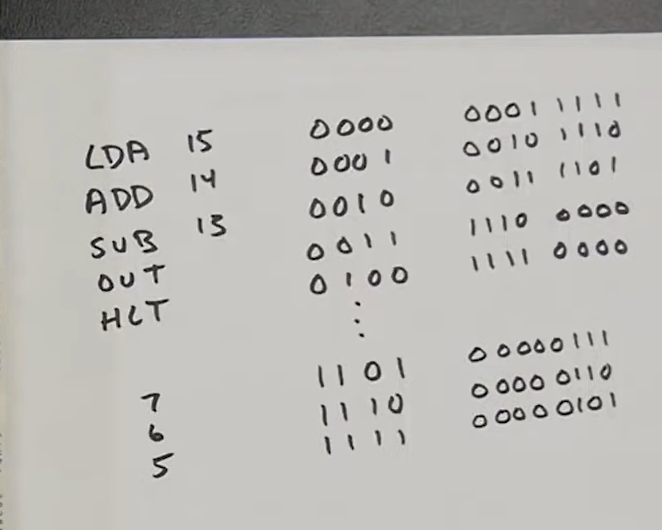 LDA 15 0000 0001 1111
ADD 14 0001 0010 1110
SUB 13 0010 0011 1101
OUT 0011 1110 0000
HLT 0100 1111 0000
⋮
7 1101 00000111
6 1110 0000 0110
5 1111 00000101